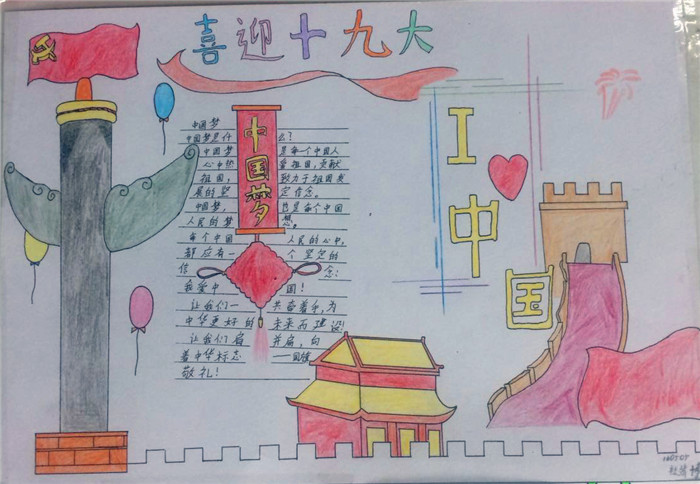 喜迎十九大
中国梦
中国梦
中国梦是什么?
中国梦是每一个中国人
心中热爱祖国,贡献
祖国,致力于祖国发
展的坚定信念。
中国梦,总是每个中国
人民的梦想。
每个中国人民的心中,
都应有一个坚定的
信念:
我爱中国!
让我们一共奋着手,为
中华更好的未来而建设!
让我们肩并肩,向
着中华标志——国旗
敬礼!
I
中
国